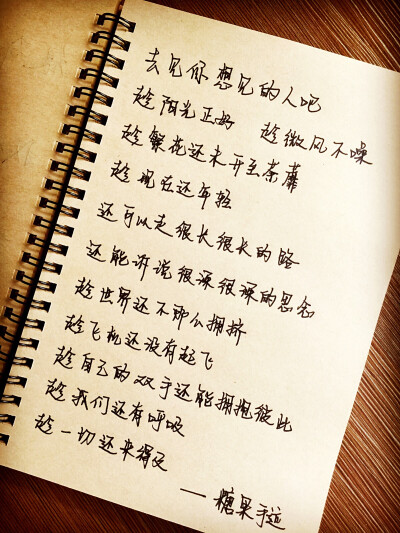 去见你想见的人吧
趁阳光正好 趁微风不噪
趁繁花还未开至荼蘼
趁现在还年轻
还可以走很长很长的路
还能诉说很深很深的思念
趁世界还不那么拥挤
趁飞机还没有起飞
趁自己的双手还能拥抱彼此
趁我们还有呼吸
趁一切还来得及
——糖果手迹